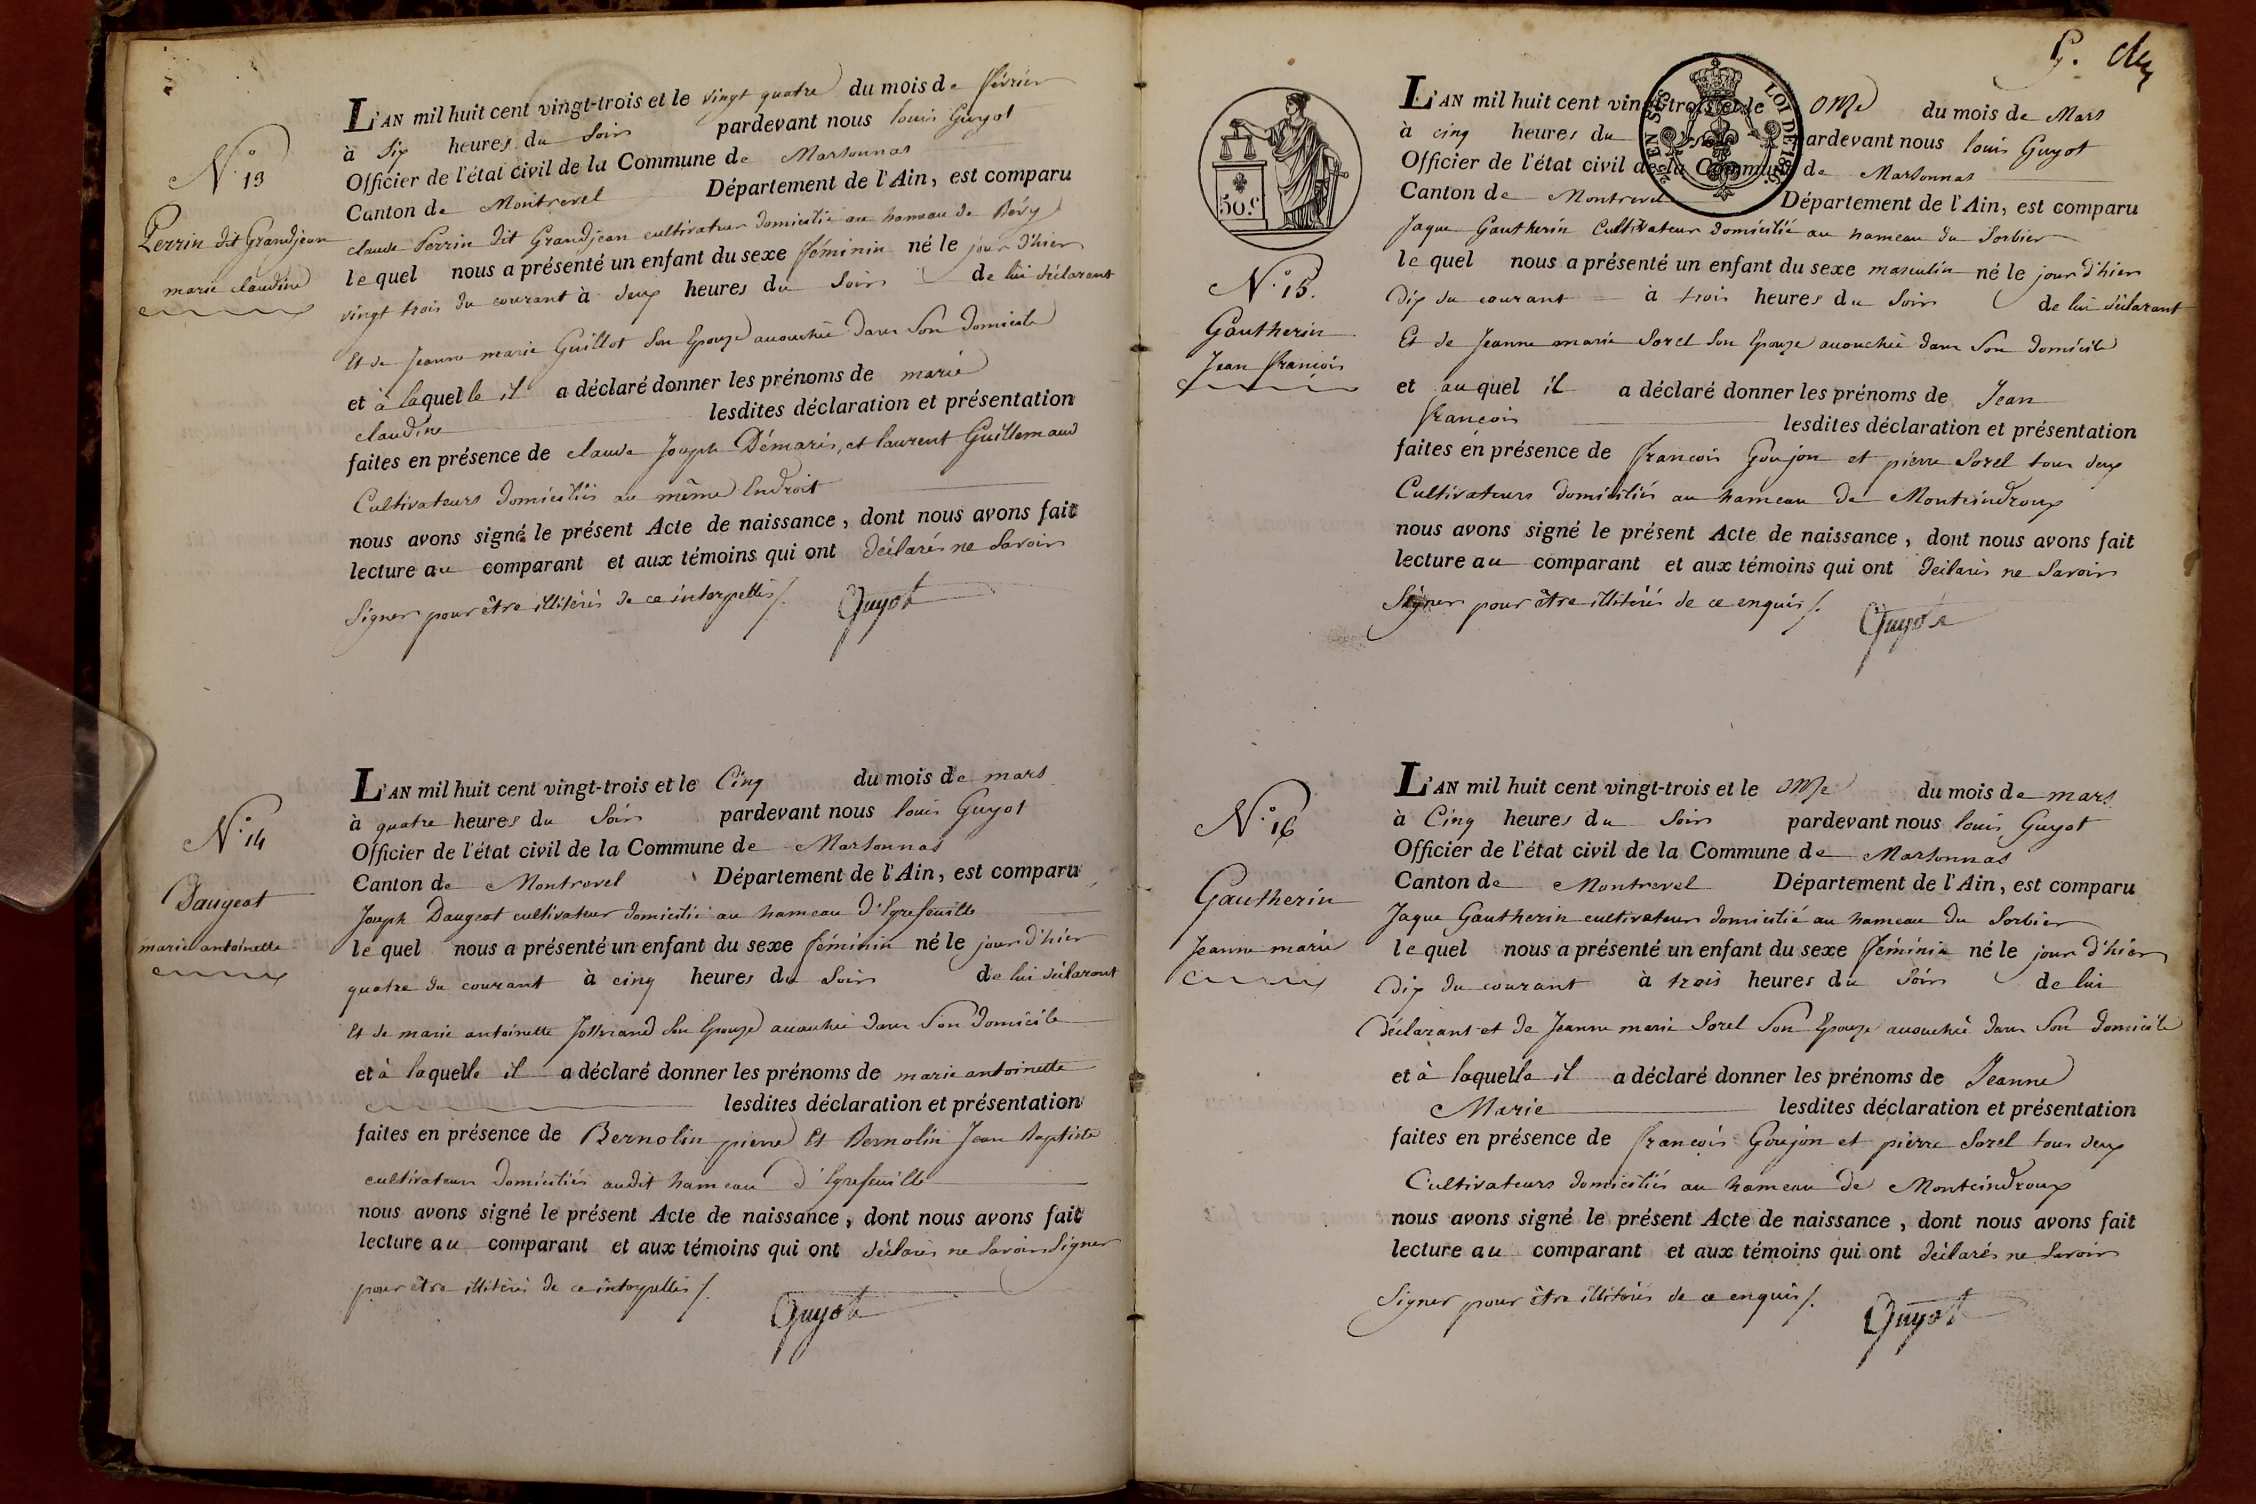 N.° 13
Perrin dit Grandjean
marie claudine
L'AN mil huit cent vingt-trois et le vingt quatre du mois de février
à Six heures du Soir pardevant nous louis Guyot
Officier de l'état civil de la Commune de Marsonnas
Canton de Montrevel Département de l'Ain, est comparu
claude Perrin dit Grandjean cultivateur domicilié au hameau de Bévy
lequel nous a présenté un enfant du sexe féminin né le jour d'hier
vingt trois du courant à deux heures du Soir de lui déclarant
Et de Jeanne marie Guillot Son Epouze accouchée dans Son domicile
et à laquelle il a déclaré donner les prénoms de marie
claudine lesdites déclaration et présentation
faites en présence de claude Joseph Démaris, et laurent Guillemaud
Cultivateurs domiciliés au même Endroit
nous avons signé le présent Acte de naissance, dont nous avons fait
lecture au comparant et aux témoins qui ont déclarés ne Savoir
Signer pour être illitérés de ce interpellés /.
Guyot
N.° 14
Daugeat
marie antoinette
L'AN mil huit cent vingt-trois et le Cinq du mois de mars
à quatre heures du Soir pardevant nous louis Guyot
Officier de l'état civil de la Commune de Marsonnas
Canton de Montrevel Département de l'Ain, est comparu
Joseph Daugeat cultivateur domicilié au hameau d'Egrefeuille
lequel nous a présenté un enfant du sexe féminin né le jour d'hier
quatre du courant à cinq heures du Soir de lui déclarant
Et de marie antoinette Son Epouze accouchée dans Son domicile
et à laquelle il a déclaré donner les prénoms de marie antoinette
lesdites déclaration et présentation
faites en présence de Bernolin pierre Et Bernolin Jean Baptiste
cultivateurs domiciliés audit hameau d'Egrefeuille
nous avons signé le présent Acte de naissance, dont nous avons fait
lecture au comparant et aux témoins qui ont déclarés ne Savoir Signer
pour être illitérés de ce interpellés /.
Guyot
50.c
25 EN SUS
LOI DE 1816
N.° 15.
Gautherin
Jean francois
L'AN mil huit cent vingt-trois et le onze du mois de Mars
à cinq heures du Soir pardevant nous louis Guyot
Officier de l'état civil de la Commune de Marsonnas
Canton de Montrevel Département de l'Ain, est comparu
Jaque Gautherin Cultivateur domicilié au hameau du Sorbier
lequel nous a présenté un enfant du sexe masculin né le jour d'hier
Dix du courant à trois heures du Soir de lui déclarant
Et de Jeanne marie Sorel Son Epouze accouchée dans Son domicile
et auquel il a déclaré donner les prénoms de Jean
francois lesdites déclaration et présentation
faites en présence de francois Goujon et pierre Sorel tous deux
Cultivateurs domiciliés au hameau de Montcindroux
nous avons signé le présent Acte de naissance, dont nous avons fait
lecture au comparant et aux témoins qui ont déclarés ne Savoir
Signer pour être illitérés de ce enquis /.
Guyot
N.° 16
Gautherin
Jeanne marie
L'AN mil huit cent vingt-trois et le onze du mois de mars
à Cinq heures du Soir pardevant nous louis Guyot
Officier de l'état civil de la Commune de Marsonnas
Canton de Montrevel Département de l'Ain, est comparu
Jaque Gautherin cultivateur domicilié au hameau du Sorbier
lequel nous a présenté un enfant du sexe féminin né le jour d'hier
Dix du courant à trois heures du Soir de lui
déclarant et de Jeanne marie Sorel Son Epouze accouchée dans Son domicile
et à laquelle il a déclaré donner les prénoms de Jeanne
Marie lesdites déclaration et présentation
faites en présence de francois Goujon et pierre Sorel tous deux
Cultivateurs domiciliés au hameau de Montcindroux
nous avons signé le présent Acte de naissance, dont nous avons fait
lecture au comparant et aux témoins qui ont déclarés ne Savoir
Signer pour être illitérés de ce enquis /.
Guyot